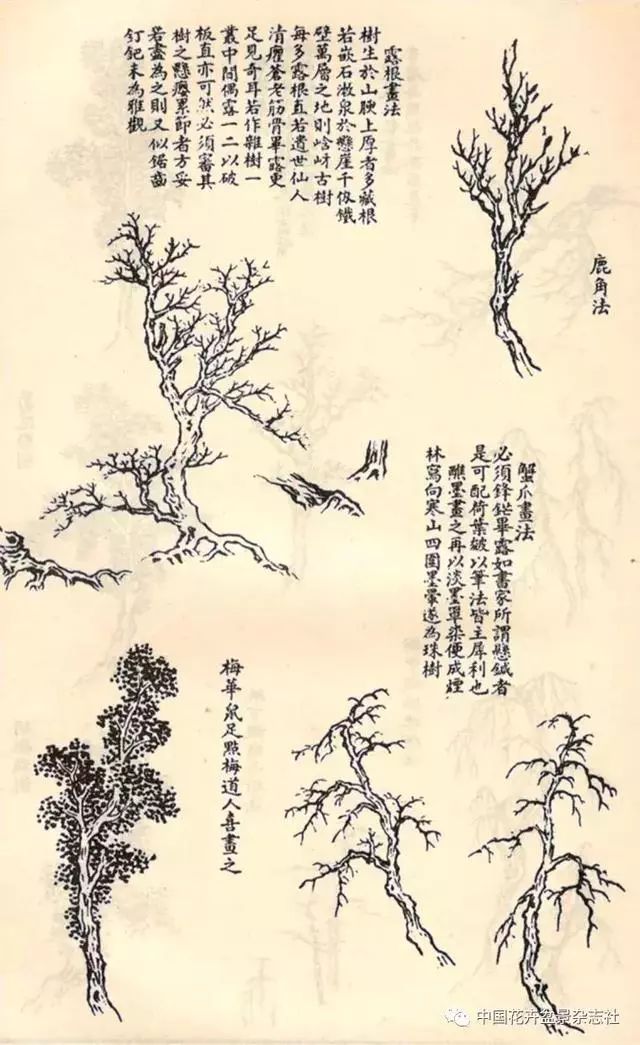 鹿角法
露根畫法
樹生於山腴上厚者多藏根
若嵌石漱泉於懸崖千仞鐵
壁萬層之地則崆岈古樹
每多露根直若遺世仙人
清癯蒼老筋骨畢露更
足見奇耳若作雜樹一
叢中間偶露一二以破
板直亦可然必須審其
樹之懸癭累節者方妥
若盡為之則又似鋸齒
釘鈀未為雅觀
蟹爪畫法
必須鋒鋩畢露如書家所謂懸鍼者
是可配荷葉皴以筆法皆主犀利也
醮墨畫之再以淡墨罩染便成煙
林寫向寒山四圍墨暈遂為珠樹
梅華鼠足點梅道人喜畫之
中国花卉盆景杂志社